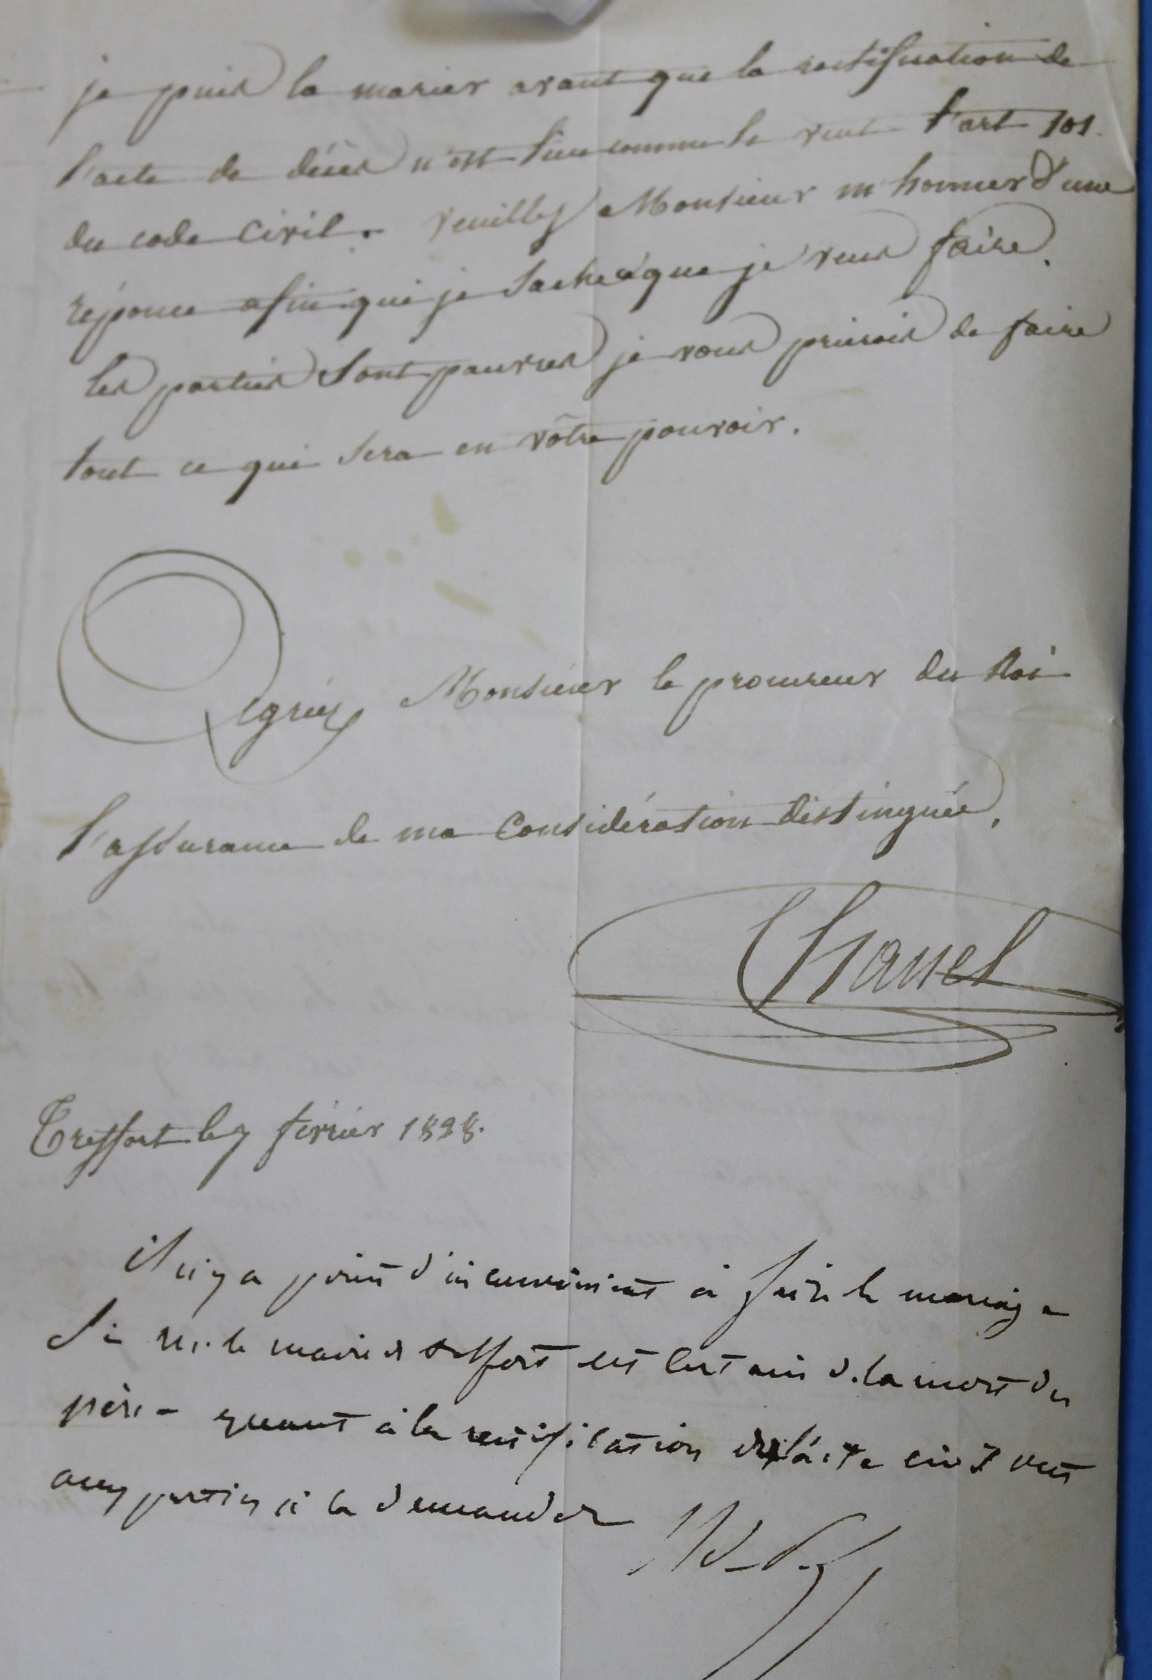 je puis la marier avant que la rectification de
l'acte de décès n'est lieu comme le veut l'art 101.
du code civil. veuillez Monsieur m'honnorer d'une
réponce afin que je sache que je veus faire.
les parties sont pauvres je vous prierois de faire
tout ce qui sera en vôtre pouvoir.
Agréez Monsieur le procureur du Roi
l'assurance de ma Considération distinguée,
Chanel
Treffort le 7 février 1838.
il n'y a point d'inconvénient à faire le mariage
si Mr. le maire de treffort est certain de la mort du
père - quant à la rectification de l'acte c'est
aux parties à la demander